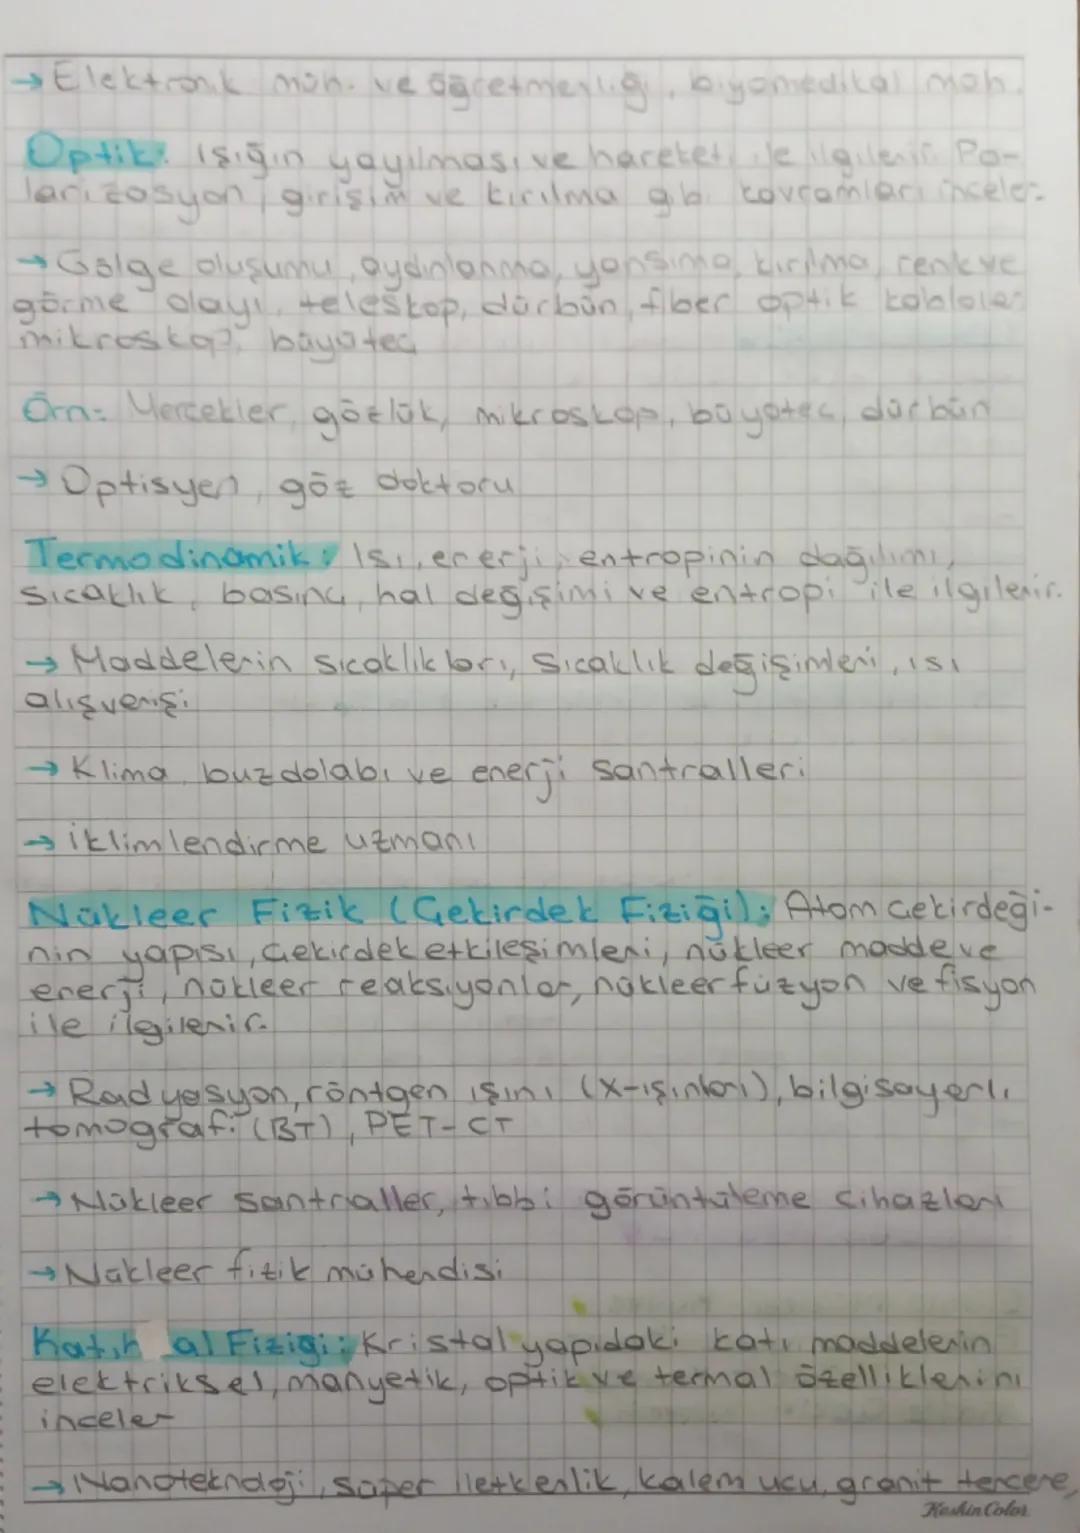 → Elektronik müh. ve öğretmenliği, biyomedikal müh.
Optik: Işığın yayılması ve hareketi ile ilgilenir. Po-
larizasyon, girişim ve kırılma gibi kavramları inceler.
→ Gölge oluşumu, aydınlanma, yansıma, kırılma, renk ve
görme olayı, teleskop, dürbün, fiber optik kablolar
mikroskop, büyüteç
Örn: Mercekler, gözlük, mikroskop, büyüteç, dürbün
→ Optisyen, göz doktoru
Termodinamik: Isı, enerji, entropinin dağılımı,
sıcaklık, basınç, hal değişimi ve entropi ile ilgilenir.
→ Maddelerin sıcaklıkları, sıcaklık değişimleri, ısı
alışverişi
→ Klima, buzdolabı ve enerji santralleri
→ iklimlendirme uzmanı
Nükleer Fizik (Çekirdek Fiziği): Atom çekirdeği-
nin yapısı, çekirdek etkileşimleri, nükleer madde ve
enerji, nükleer reaksiyonlar, nükleer füzyon ve fisyon
ile ilgilenir.
→ Radyasyon, röntgen ışını (X-ışınları), bilgisayarlı
tomografi (BT), PET-CT
→ Nükleer santraller, tıbbi görüntüleme cihazları
→ Nükleer fizik mühendisi
Katıhal Fiziği: Kristal yapıdaki katı maddelerin
elektriksel, manyetik, optik ve termal özelliklerini
inceler
→ Nanoteknoloji, süper iletkenlik, kalem ucu, granit tencere,
Keskin Color